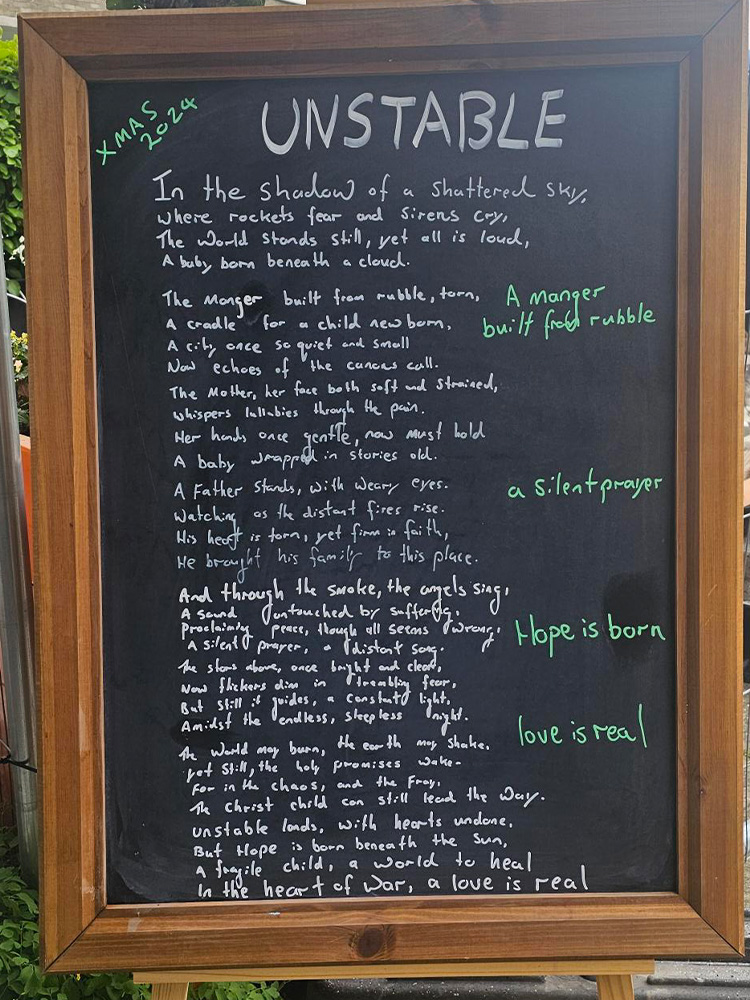 XMAS
2024
UNSTABLE
In the shadow of a shattered sky,
where rockets fear and sirens cry,
The World Stands still, yet all is loud,
A baby born beneath a cloud.
The Manger built from rubble, torn,
A cradle for a child new born,
A city once so quiet and small
Now echoes of the canons call.
The Mother, her face both soft and strained,
whispers lullabies through the pain.
Her hands once gentle, now must hold
A baby wrapped in stories old.
A Father stands, with weary eyes.
Watching as the distant fires rise.
His heart is torn, yet firm in faith,
He brought his family to this place.
And through the smoke, the angels sing,
A sound untouched by suffering,
Proclaiming peace, though all seems wrong,
A silent prayer, a distant song.
The stars above, once bright and clear,
Now flickers dim in trembling fear,
But still it guides, a constant light,
Amidst the endless, sleepless night.
The World may burn, the earth may shake,
yet still, the holy promises wake-
For in the chaos, and the Fray,
The Christ child can still lead the way.
unstable lands, with hearts undone,
But Hope is born beneath the Sun,
A fragile child, a world to heal
In the heart of war, a love is real
A manger
built from rubble
a silent prayer
Hope is born
love is real